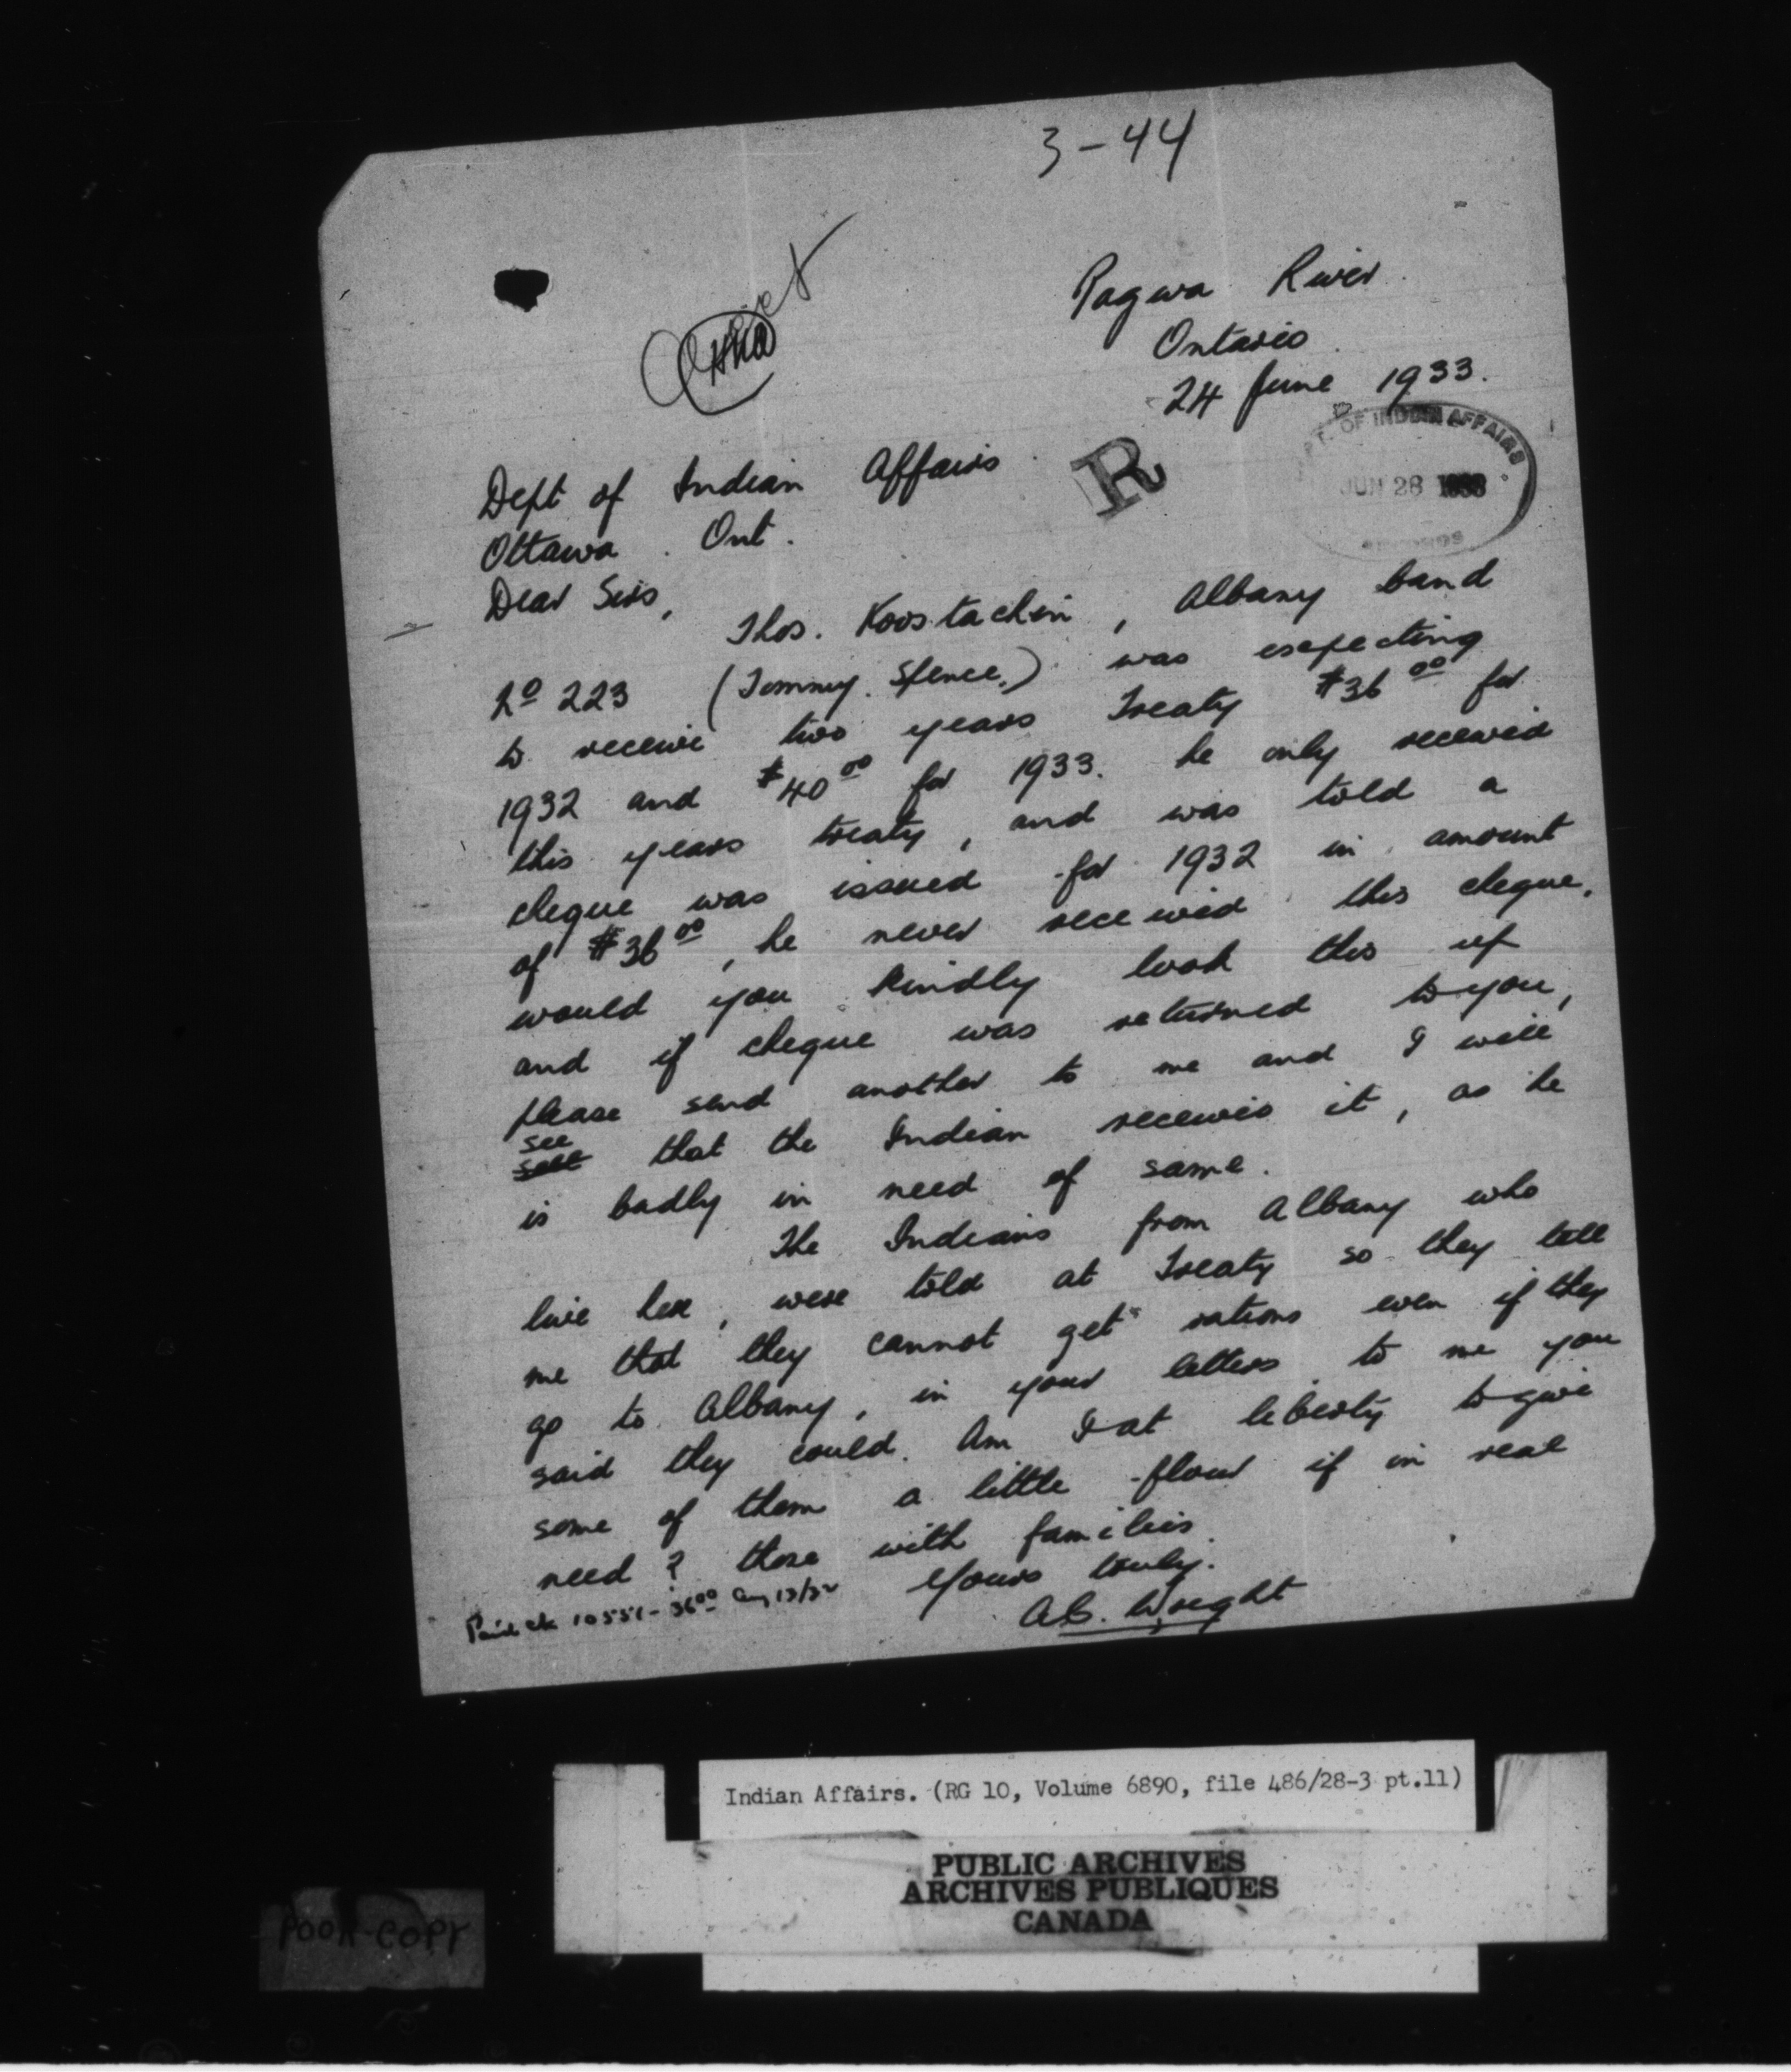 3-44
Pagwa River
Ontario
24 June 1933.
DEPT. OF INDIAN AFFAIRS
R
JUN 28 1933
RECORDS
Dept of Indian Affairs
Ottawa. Ont.
Dear Sirs,
Thos. Koostachin, Albany band
No 223 (Tommy. Spence.) was expecting
to receive two years Treaty $36 00 for
1932 and $40 00 for 1933. he only received
this years treaty, and was told a
cheque was issued for 1932 in amount
of $36 00, he never received this cheque.
would you kindly look this up
and if cheque was returned to you,
please send another to me and I will
see
that the Indian receives it, as he
is badly in need of same.
The Indians from Albany who
live here, were told at Treaty so they tell
me that they cannot get rations even if they
go to Albany, in your letters to me you
said they could. Am I at liberty to give
some of them a little flour if in real
need? those with families.
Yours truly.
Paid ck 10551-36 00 Aug 13/32
A.C. Wright
Indian Affairs. (RG 10, Volume 6890, file 486/28-3 pt.11)
PUBLIC ARCHIVES
ARCHIVES PUBLIQUES
CANADA
POOR COPY